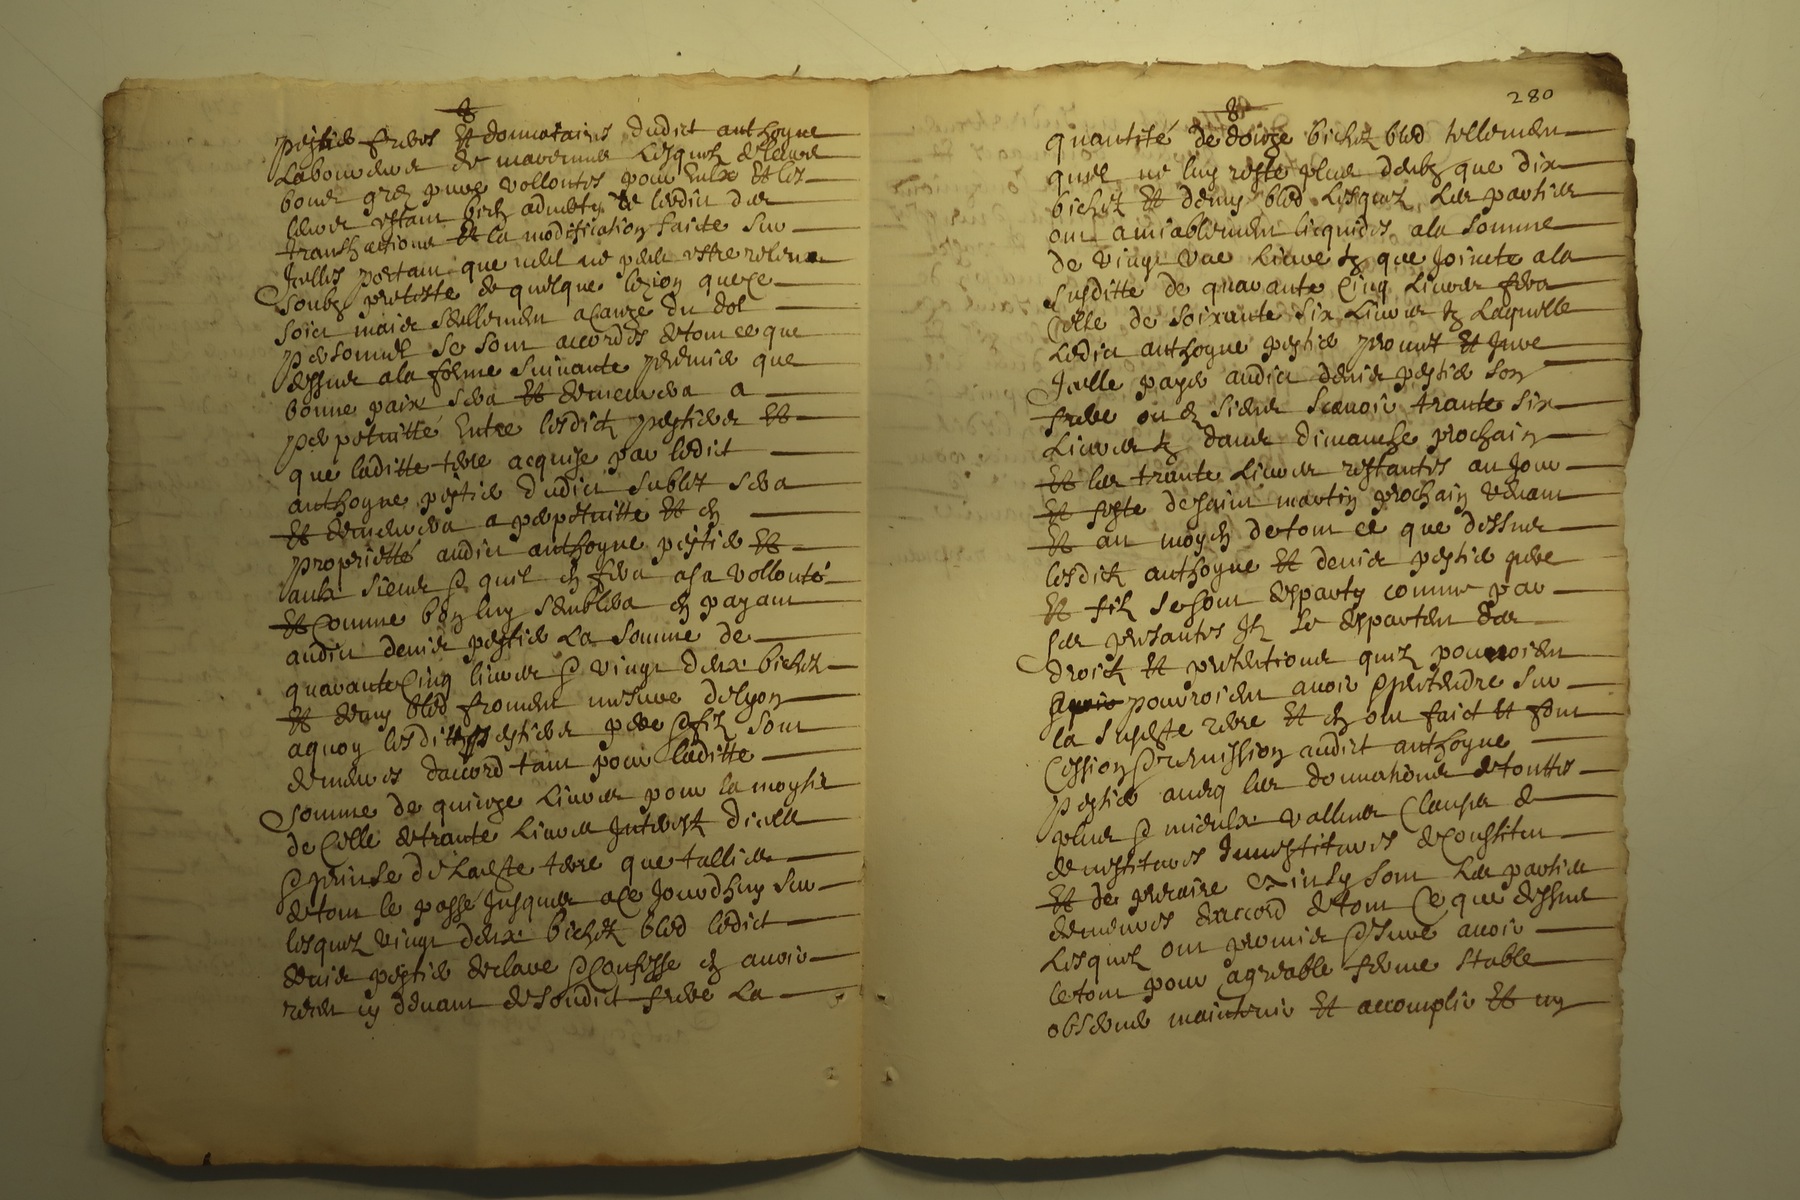 pestié freres Et donnataires dudict anthoyne
Laboureurs de maverenne Lesquelz de leurs
bones grez pures vollontés pour Eulx Et les
leurs estant bien advertiz de ledit des
transhactions Et la modification faicte sur
Icelles portant que nul ne peut estre relevé
Soubz preteste de quelque lezion que ce
soict mais seullement a cauze du dol
personnel Se sont accordés de tout ce que
dessus a la forme suivante premier que
bonne paix sera Et demeurera a
perpetuitté Entre lesdictz pestiers Et
que laditte terre acquise par ledict
anthoyne pestié dudict sublet sera
Et demeurera a perpetuitte Et en
proprietté audict anthoyne pestié Et
aulx siens & quil en fera a sa vollonté
Et Comme bon luy semblera en payant
audict denis pestié La Somme de
quarante Cinq livres & vingt deux bichetz
Et demy bled froment mesure de lyon
a quoy lesdittz pestiers pere & filz sont
demeurés daccord tant pour laditte
Somme de quinze Livres pour la moytié
de Celle de trante Livres Interestz dicelle
& prinse de Ladite terre que tallies
de tout le passé Jusques a Ce Jourdhuy sur
lesquelz vingt deux bichetz bled ledict
denis pestié declare & Confesse en avoir
receu cy devant de sondict frere La
280
quantité de douze bichetz bled tellement
quil ne luy reste plus deubz que dix
bichetz Et demy bled Lesquelz Les parties
ont amiablement licquidés a la somme
de vingt une Livre tz que Jointe a la
susditte de quarante Cinq Livres fera
Celle de soixante six Livres tz Laquelle
Ledict anthoyne pestié promet Et Jure
Icelle payer audict denis pestié son
frere ou es siens scavoir trante six
Livres tz dans dimanche prochain
Et les trante Livres restantes au Jour
Et feste de saint martin prochain venant
Et au moyen de tout ce que dessus
lesdictz anthoyne Et denis pestié pere
Et filz se sont desparty comme par
ses presantes Ilz se despartent des
droictz Et pretentions quilz pourroient
pourroient avoir & pretendre sur
la susdite terre Et en ont faict Et font
Cession & remission audict anthoyne
pestié avecq les donnations de touttes
plus & mieulx vallues Clauses de
devestitures Investitures de Constitut
Et de precaire Ainsy sont Les parties
demeurés daccord de tout Ce que dessus
Lesquelz ont promis & Juré avoir
le tout pour agreable ferme stable
observer maintenir Et accomplir Et ny